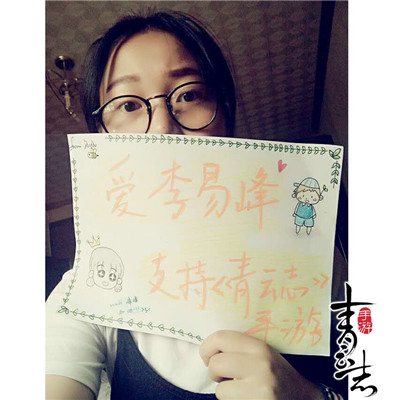 爱李易峰
支持《青云志》
手游
手游
青云志